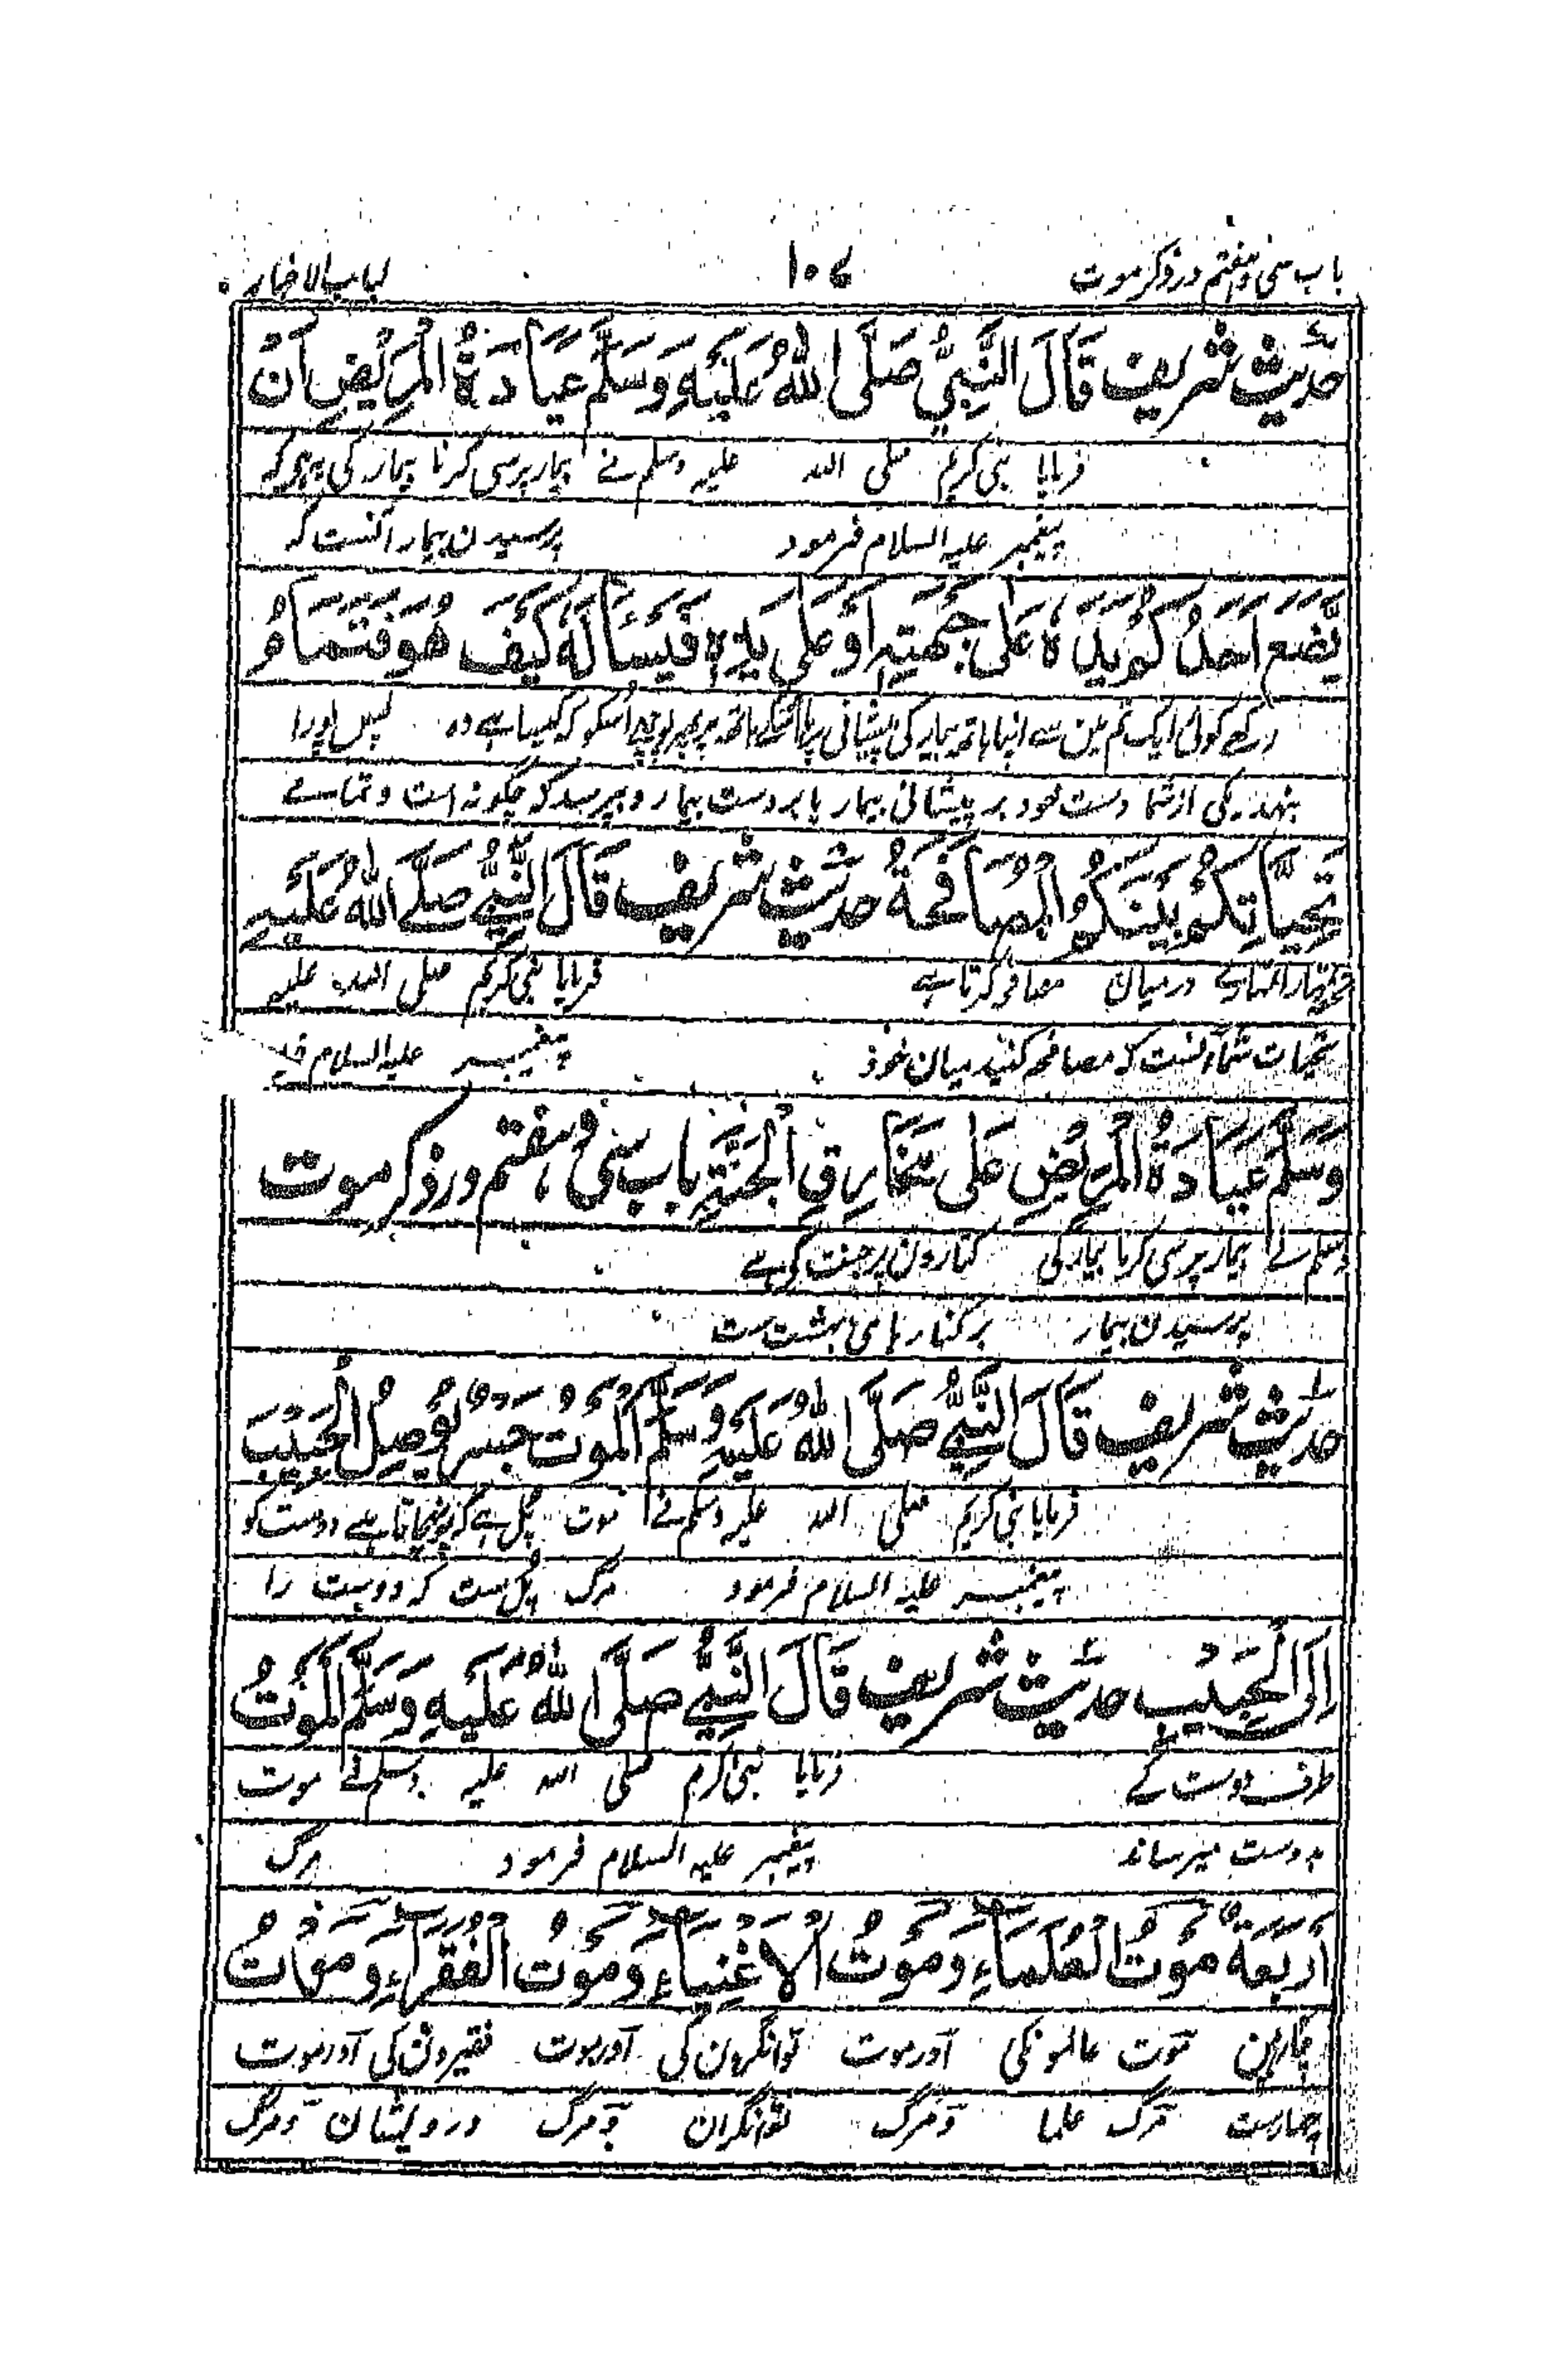 باب سی و هفتم در ذکر موت ۱۰۶ لباب الاخبار
حدیث شریف قَالَ النَّبِيُّ صَلَّی اللّٰهُ عَلَیْهِ وَسَلَّمَ عِیَادَةُ الْمَرِیْضِ اَنْ
فرمایا نبی کریم صلی الله علیه وسلم نے بیمار پرسی کرنا بیمار کی یہ ہی کہ
پیغمبر علیه السلام فرمود پرسیدن بیمار آنست که
یَّضَعَ اَحَدُکُمْ یَدَهٗ عَلٰی جَبْهَتِهٖ اَوْ عَلٰی یَدِهٖ فَیَسْأَلَهٗ کَیْفَ هُوَ فَتَمَامُ
رکھے کوئی ایک تم مین سے اپنا ہاتھ بیمار کی پیشانی پر یا اسکے ہاتھ پر پھر پوچھے اُسکو کہ کیسا ہے وہ پس پورا
بنهد یکی از شما دست خود بر پیشانی بیمار یا بر دست بیمار و بپرسد که چگونه است و تمامے
تَحِیَّاتِکُمْ بَیْنَکُمُ الْمُصَافَحَةُ حدیث شریف قَالَ النَّبِيُّ صَلَّی اللّٰهُ عَلَیْهِ
تمہارے درمیان مصافحہ کرنا ہے فرمایا نبی کریم صلی الله علیه
تحیات شما آنست که مصافحه کنید میان خود پیغمبر علیه السلام
وَسَلَّمَ عِیَادَةُ الْمَرِیْضِ عَلٰی مَخَارِقِ الْجَنَّةِ باب سی و هفتم در ذکر موت
وسلم نے بیمار پرسی کرنا بیمار کی کنارون پر جنت کی ہے
پرسیدن بیمار بر کنار ہای بہشت ست
حدیث شریف قَالَ النَّبِيُّ صَلَّی اللّٰهُ عَلَیْهِ وَسَلَّمَ اَلْمَوْتُ جِسْرٌ یُّوْصِلُ الْحَبِیْبَ
فرمایا نبی کریم صلی الله علیه وسلم نے موت پُل ہے کہ پہنچاتا ہے دوست کو
پیغمبر علیه السلام فرمود مرگ پُل ست که دوست را
اِلَی الْحَبِیْبِ حدیث شریف قَالَ النَّبِيُّ صَلَّی اللّٰهُ عَلَیْهِ وَسَلَّمَ اَلْمَوْتُ
طرف دوست کے فرمایا نبی اکرم صلی الله علیه وسلم نے موت
بدوست میرساند پیغمبر علیه السلام فرمود مرگ
اَرْبَعَةٌ مَوْتُ الْعُلَمَاءِ وَمَوْتُ الْاَغْنِیَاءِ وَمَوْتُ الْفُقَرَاءِ وَمَوْتُ
چار ہین موت عالمونکی اور موت توانگرون کی اور موت فقیرون کی اور موت
چهارست مرگ علما و مرگ توانگران و مرگ درویشان و مرگ